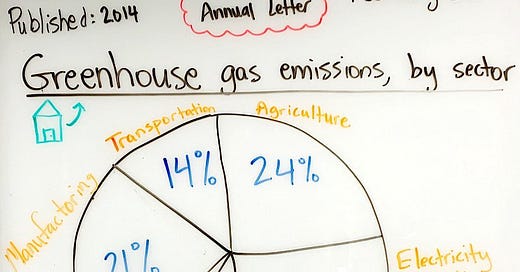 Published: 2014
Annual Letter
Greenhouse gas emissions, by sector
Transportation
Agriculture
14%
24%
Manufactoring
21%
Electricity